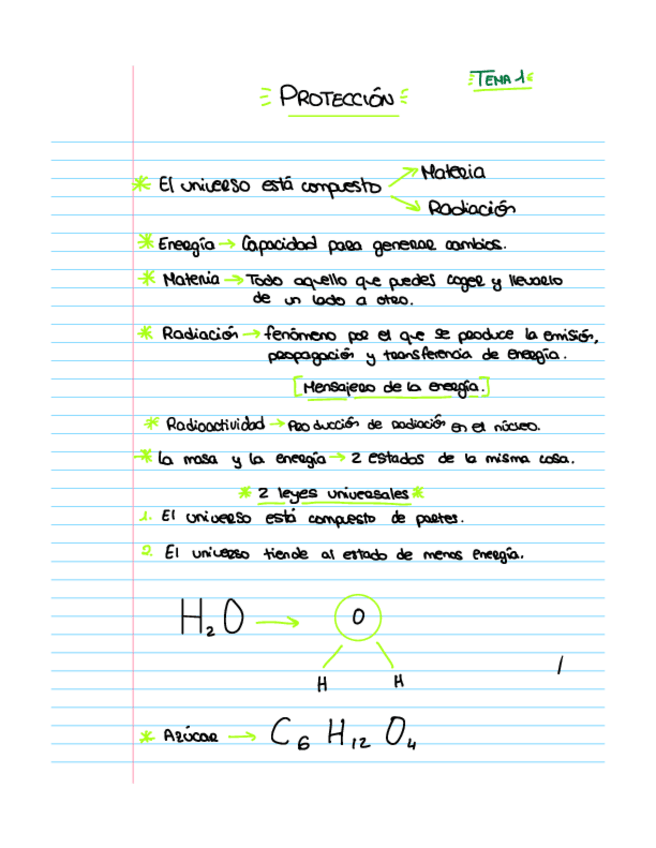 TEMA 1
PROTECCIÓN
* El universo está compuesto → Materia
→ Radiación
* Energía → Capacidad para generar cambios.
* Materia → Todo aquello que puedes coger y llevarlo
de un lado a otro.
* Radiación → fenómeno por el que se produce la emisión,
propagación y transferencia de energía.
[Mensajero de la energía.]
* Radioactividad → Producción de radiación en el núcleo.
* La masa y la energía → 2 estados de la misma cosa.
* 2 leyes universales *
1. El universo está compuesto de partes.
2. El universo tiende al estado de menos energía.
H₂O → O
H H
1
* Azúcar → C₆ H₁₂ O₄